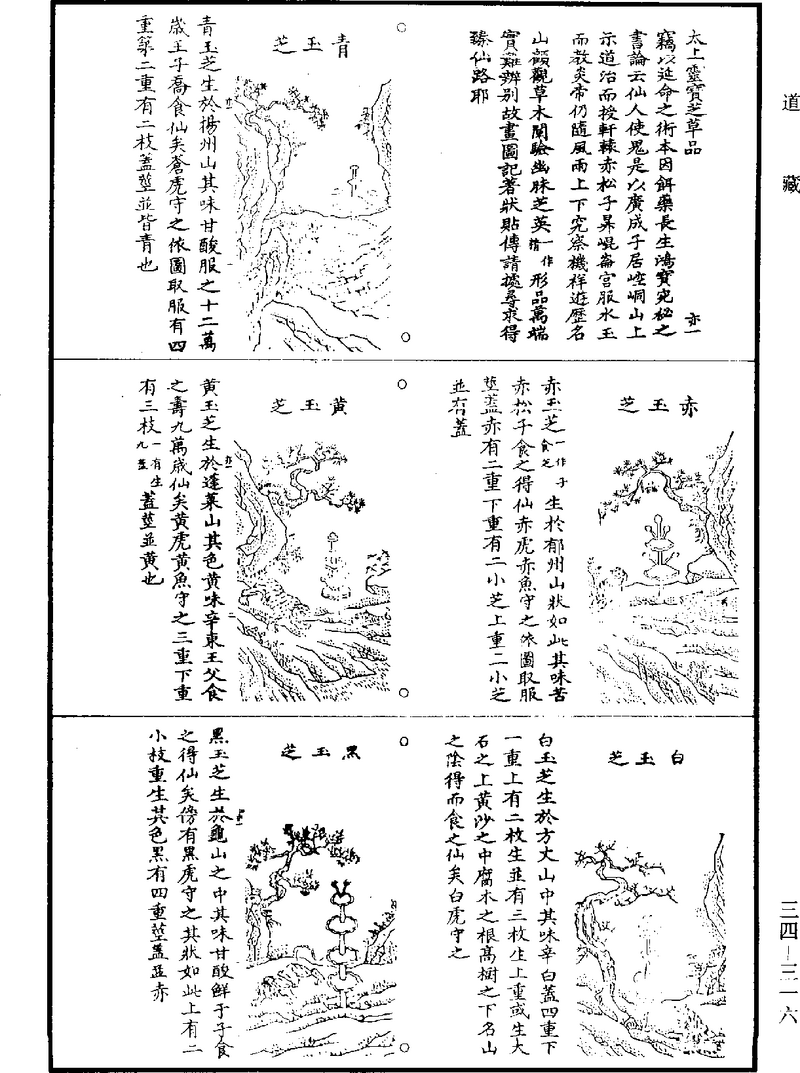 道藏
太上靈寶芝草品
亦一
竊以延命之術本因餌藥長生鴻寶宛秘之
書論云仙人使鬼是以廣成子居崆峒山上
示道治而授軒轅赤松子昇崐崙宮服水玉
而教炎帝仍隨風雨上下究察機祥遊歷名
山顧觀草木聞驗幽昧芝英一作精形品萬端
實難辨別故畫圖記著狀貼傳請據尋求得
臻仙路耶
青玉芝
青玉芝生於揚州山其味甘酸服之十二萬
歲王子喬食仙矣蒼虎守之依圖取服有四
重第二重有二枝蓋莖並皆青也
赤玉芝
赤玉芝一作子食芝生於郁州山狀如此其味苦
赤松子食之得仙赤虎赤魚守之依圖取服
莖蓋亦有二重下重有二小芝上重二小芝
並有蓋
黃玉芝
黃玉芝生於蓬萊山其色黃味辛東王父食
之壽九萬歲仙矣黃虎黃魚守之三重下重
有三枝一有生九蓋蓋莖並黃也
白玉芝
白玉芝生於方丈山中其味辛白蓋四重下
一重上有二枚生並有三枚生上重或生大
石之上黃沙之中腐木之根高樹之下名山
之陰得而食之仙矣白虎守之
黑玉芝
黑玉芝生於龜山之中其味甘酸鮮于子食
之得仙矣傍有黑虎守之其狀如此上有二
小枝重生其色黑有四重莖蓋並赤
三四—三一六